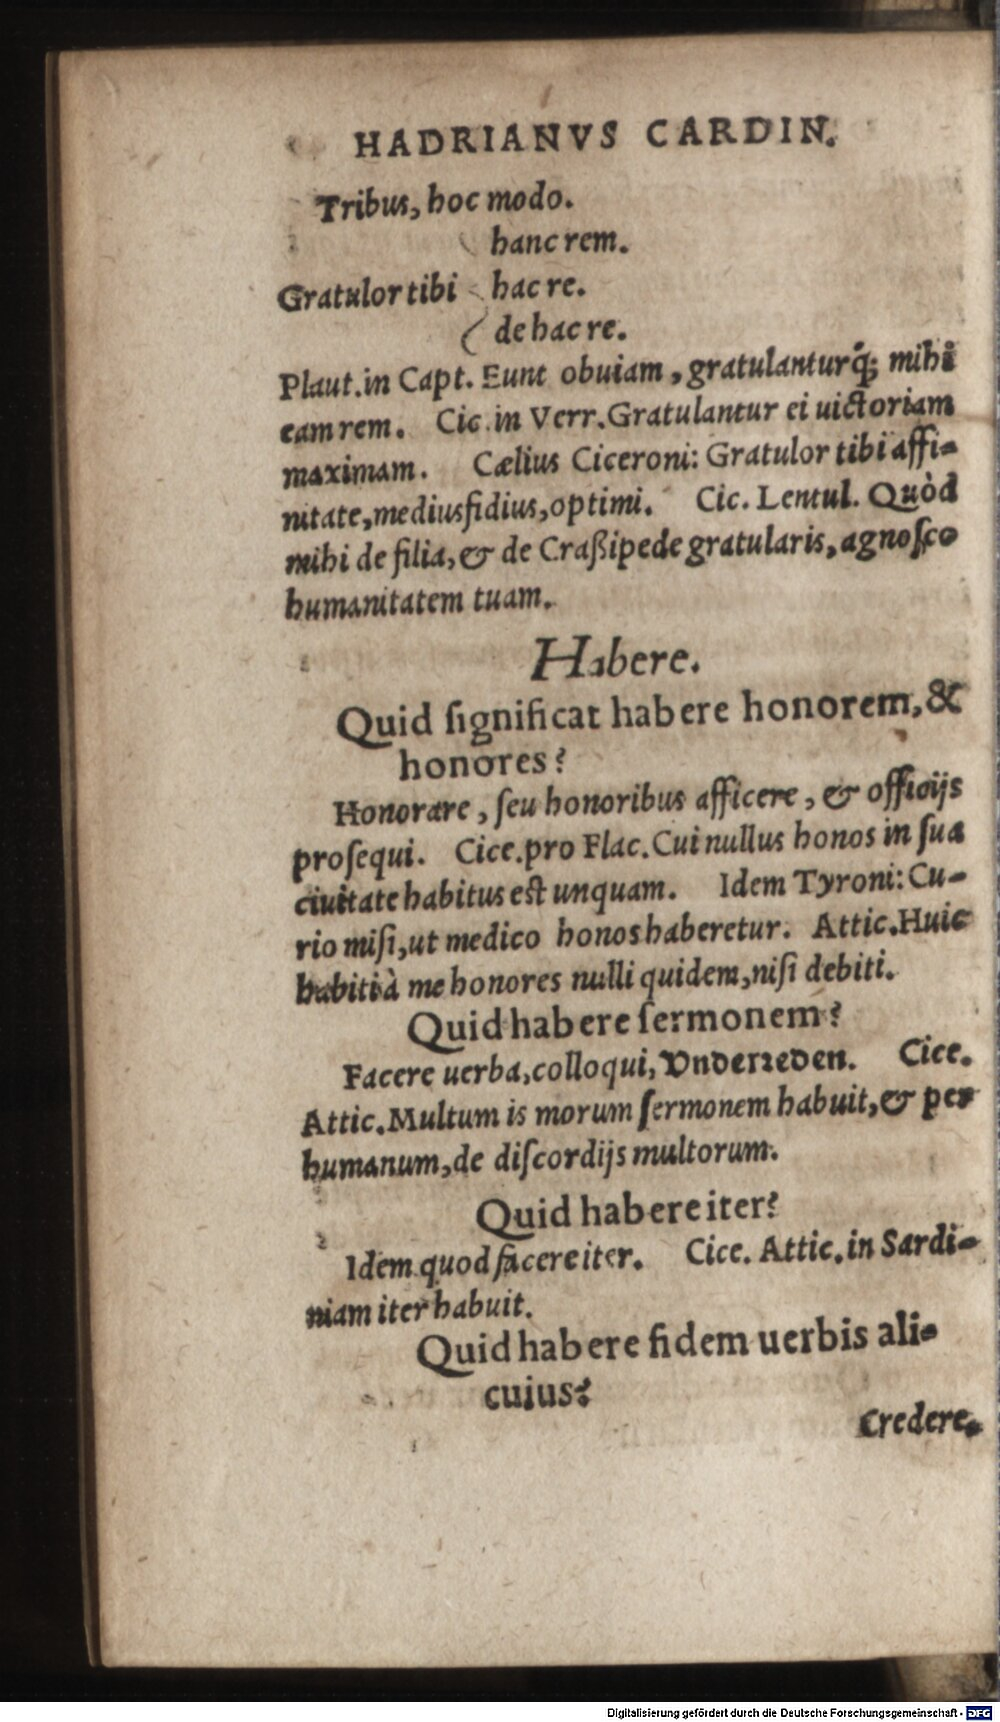 HADRIANVS CARDIN.
Tribus, hoc modo.
hanc rem.
Gratulor tibi hac re.
de hac re.
Plaut. in Capt. Eunt obuiam, gratulanturq́; mihi
eam rem. Cic. in Verr. Gratulantur ei uictoriam
maximam. Cælius Ciceroni: Gratulor tibi affi-
nitate, mediusfidius, optimi. Cic. Lentul. Quòd
mihi de filia, & de Craßipede gratularis, agnoſco
humanitatem tuam.
Habere.
Quid ſignificat habere honorem, &
honores?
Honorare, ſeu honoribus afficere, & officijs
proſequi. Cice. pro Flac. Cui nullus honos in ſua
ciuitate habitus est unquam. Idem Tyroni: Cu-
rio miſi, ut medico honos haberetur. Attic. Huic
habiti à me honores nulli quidem, niſi debiti.
Quid habere ſermonem?
Facere uerba, colloqui, Vnderreden. Cice.
Attic. Multum is morum ſermonem habuit, & per
humanum, de diſcordijs multorum.
Quid habere iter?
Idem quod facere iter. Cice. Attic. in Sardi-
niam iter habuit.
Quid habere fidem uerbis ali-
cuius?
Credere.
Digitalisierung gefördert durch die Deutsche Forschungsgemeinschaft - DFG